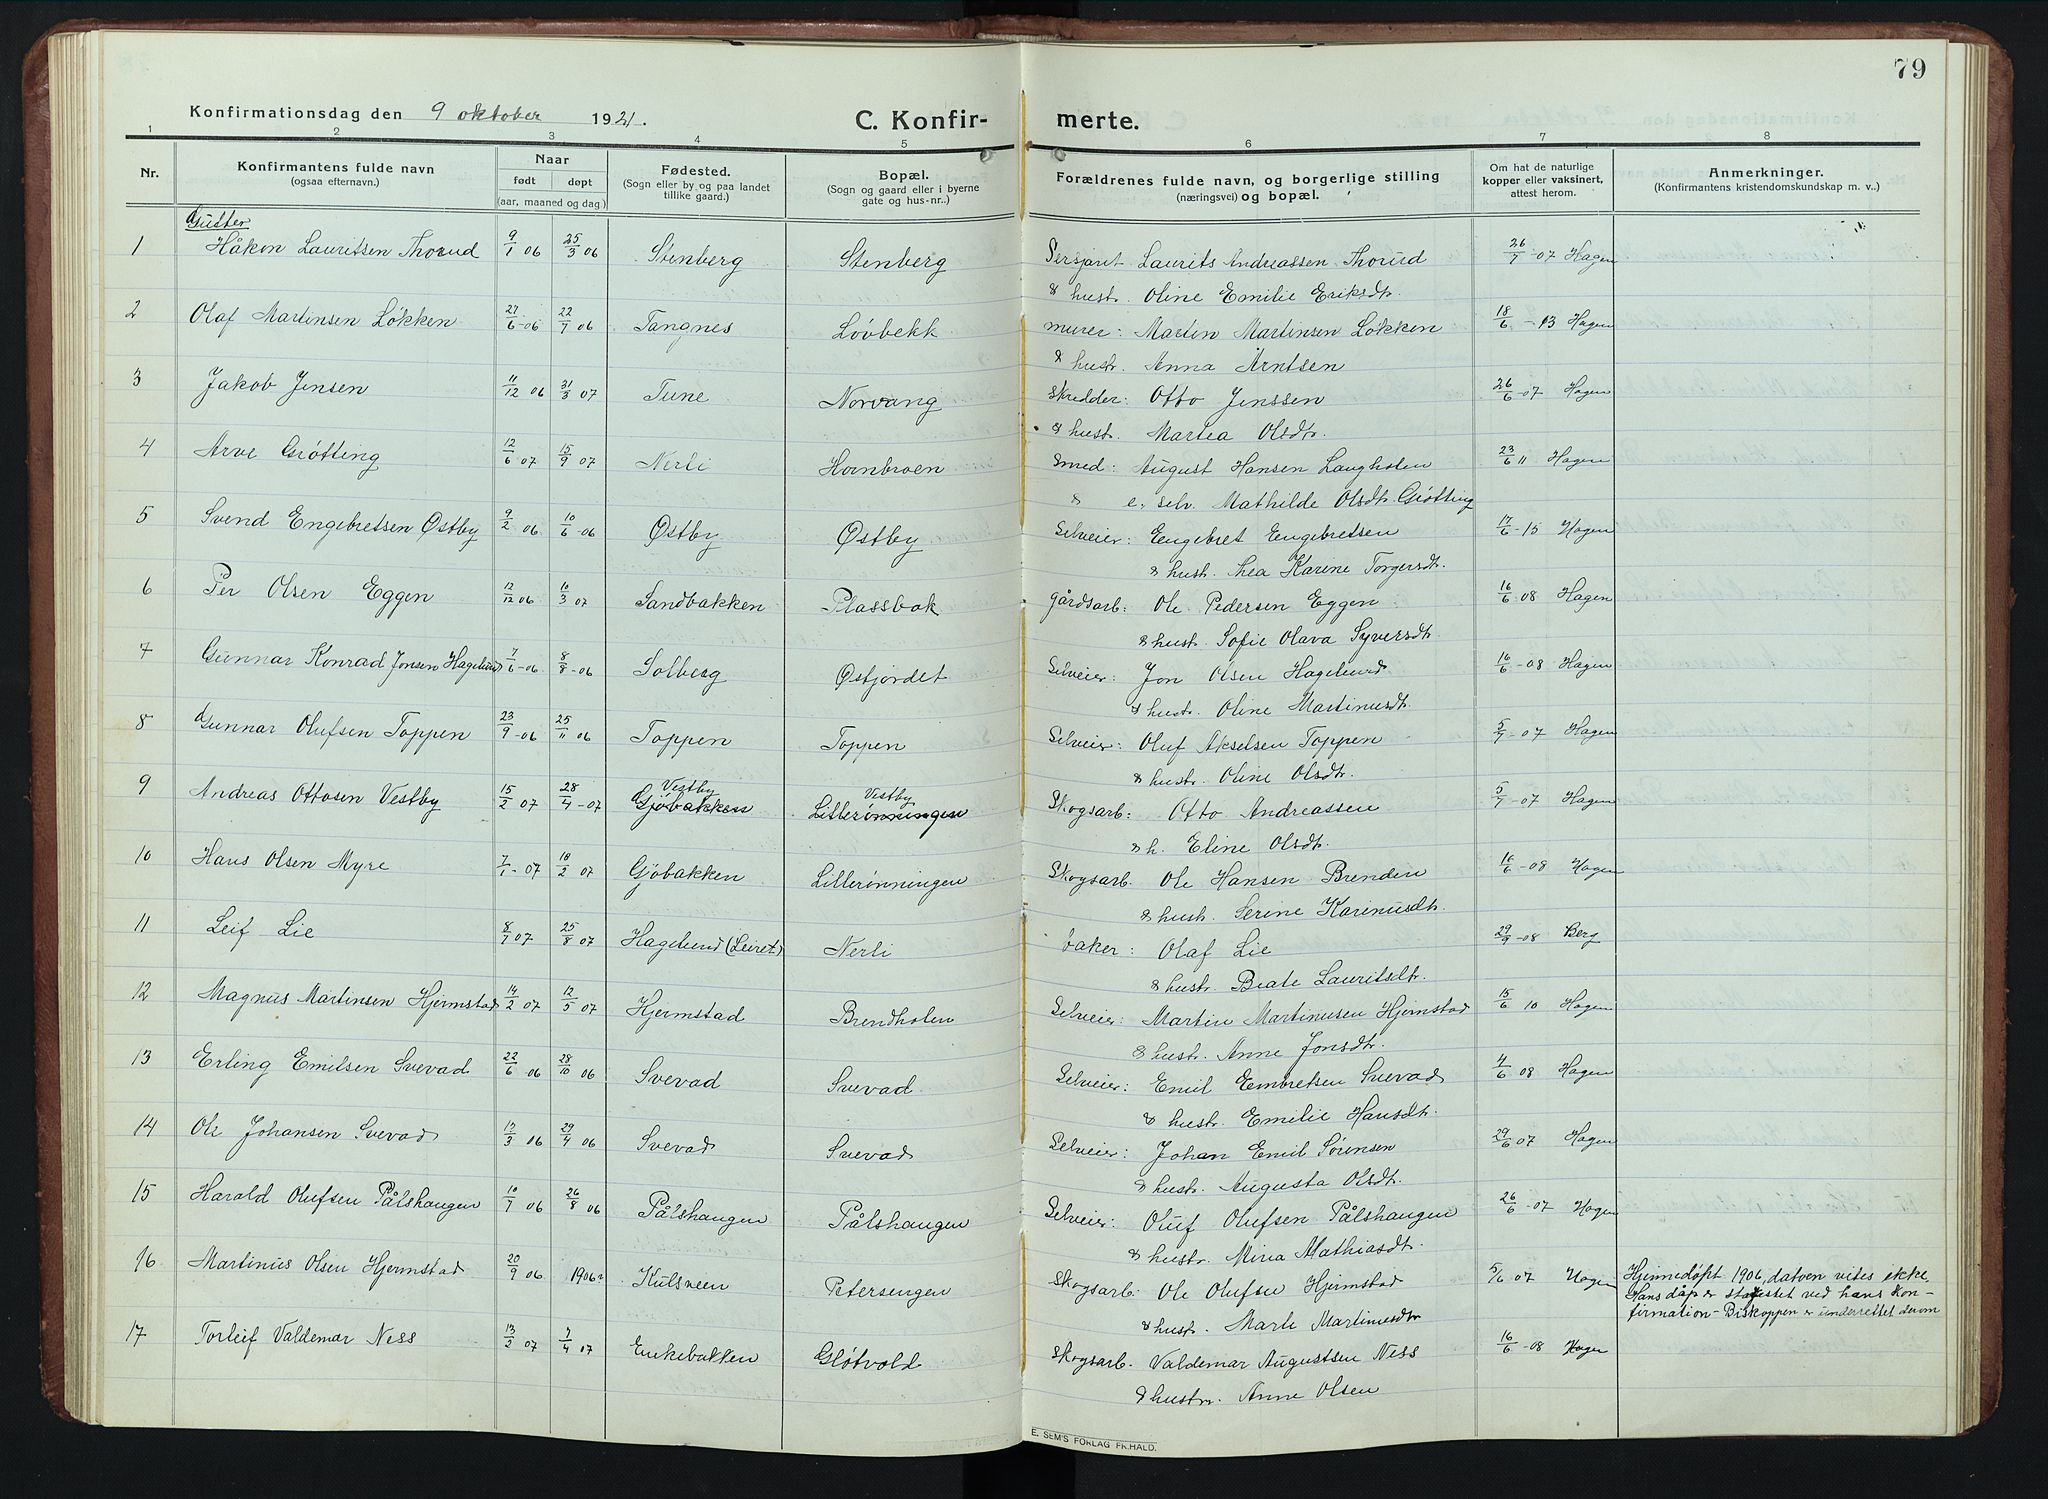 79
Konfirmationsdag den 9 oktober 1921.
C. Konfir- merte.
1 2 3 4 5 6 7 8
Nr.
Konfirmantens fulde navn
(ogsaa efternavn.)
Naar
født døpt
(aar, maaned og dag)
Fødested.
(Sogn eller by og paa landet
tillike gaard.)
Bopæl.
(Sogn og gaard eller i byerne
gate og hus-nr..)
Forældrenes fulde navn, og borgerlige stilling
(næringsvei) og bopæl.
Om hat de naturlige
kopper eller vaksinert,
attest herom.
Anmerkninger.
(Konfirmantens kristendomskundskap m. v..)
Gutter
1 Håkon Lauritsen Thorud 9/1 06 25/3 06 Stenberg Stenberg Sersjant Laurits Andreassen Thorud 26/7 -07 Hagen
& hustr. Oline Emilie Eriksdtr.
2 Olaf Martinsen Løkken 27/6 -06 22/7 06 Tangnes Løvbekk murer: Martin Martinsen Løkken 18/6 -13 Hagen
& hustr. Anna Arntsen
3 Jakob Jensen 11/12 06 31/3 07 Tune Norvang Skredder: Otto Jenssen 26/6 -07 Hagen
& hustr. Martea Olsdtr.
4 Arve Grøtting 12/6 07 15/9 07 Nerli Hornbroen Smed: August Hansen Langholen 23/6 11 Hagen
& e. selv. Mathilde Olsdtr. Grøtting
5 Svend Engebretsen Østby 9/2 06 10/6 -06 Østby Østby Selveier: Engebret Engebretsen 17/6 -15 Hagen
& hustr. Thea Karine Torgersdtr.
6 Per Olsen Eggen 12/12 06 10/3 07 Sandbakken Plassbak gårdsarb: Ole Pedersen Eggen 16/6 08 Hagen
& hustr. Sofie Olava Syversdtr.
7 Gunnar Konrad Jonsen Hagelund 7/6 -06 8/8 -06 Solberg Østjordet Selveier: Jon Olsen Hagelund 16/6 -08 Hagen
& hustr. Oline Martinusdtr.
8 Gunnar Olufsen Toppen 23/9 -06 25/11 06 Toppen Toppen Selveier: Oluf Akselsen Toppen 5/7 -07 Hagen
& hustr. Oline Olsdtr.
Vestby Vestby
9 Andreas Ottosen Vestby 15/2 07 28/4 -07 Gjøbakken Lillerønningen Skogsarb: Otto Andreassen 5/7 -07 Hagen
& h. Eline Olsdtr.
10 Hans Olsen Myre 7/1 -07 10/2 07 Gjøbakken Lillerønningen Skogsarb. Ole Hansen Brenden 16/6 -08 Hagen
& hustr. Serine Karinusdtr.
11 Leif Lie 8/7 07 25/8 07 Hagelund (Leiret) Nerli baker: Olaf Lie 29/9 -08 Berg
& hustr. Beate Lauritsdtr.
12 Magnus Martinsen Hjermstad 14/2 07 12/5 07 Hjermstad Brendholen Selveier: Martin Martinusen Hjermstad 15/6 10 Hagen
& hustr. Anne Jonsdtr.
13 Erling Emilsen Svevad 22/6 06 28/10 06 Svevad Svevad Selveier: Emil Embretsen Svevad 4/6 08 Hagen
& hustr. Emilie Hansdtr.
14 Ole Johansen Svevad 12/3 06 29/4 06 Svevad Svevad Selveier: Johan Emil Sørensen 29/6 07 Hagen
& hustr. Augusta Olsdtr.
15 Harald Olufsen Pålshaugen 10/7 06 26/8 06 Pålshaugen Pålshaugen Selveier: Oluf Olufsen Pålshaugen 26/6 -07 Hagen
& hustr. Mina Mathiasdtr.
16 Martinus Olsen Hjermstad 20/9 06 1906 Kulsveen Petersengen Skogsarb: Ole Olufsen Hjermstad 5/6 07 Hagen Hjemmedøpt 1906, datoen vites ikke
Hans dåp er stadfestet ved hans kon-
firmation - Biskoppen er underrettet derom
& hustr. Marte Martinusdtr
17 Torleif Valdemar Ness 13/2 07 7/4 07 Enkebakken Gløtvold Skogsarb. Valdemar Augustsen Ness 16/6 -08 Hagen
& hustr. Anne Olsen
E. SEM'S FORLAG FR.HALD.